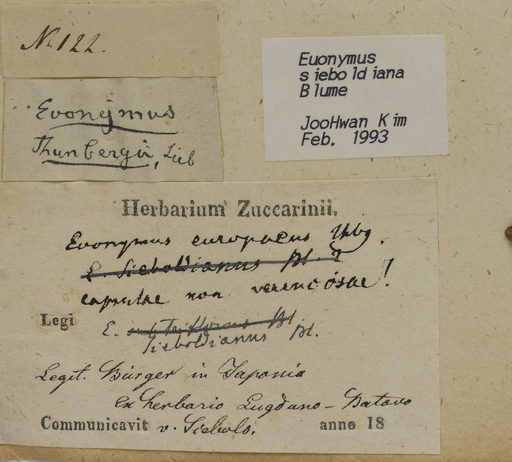 No. 122.
Evonymus
Thunbergii, Sieb
Euonymus
sieboldiana
Blume
JooHwan Kim
Feb. 1993
Herbarium Zuccarinii.
Evonymus europaeus Thbg.
E. Sieboldianus Bl. ?
capsulae non verrucosae!
Legi
E. Bl.
Sieboldianus Bl.
Legit. Bürger in Japonia
ex herbario Lugduno-Batavo
Communicavit v. Siebold. anno 18